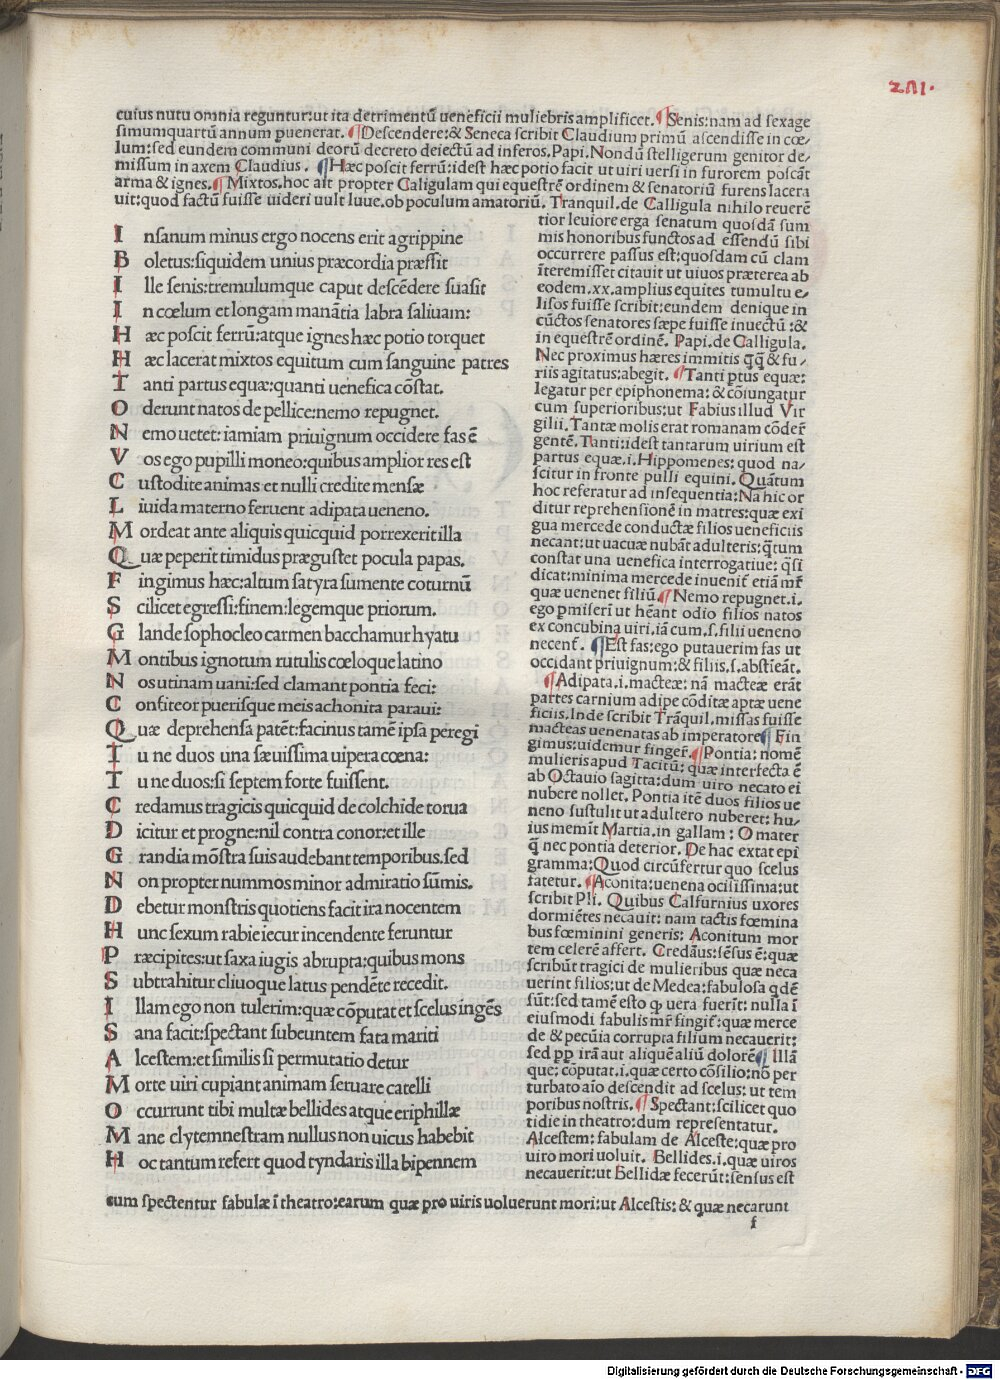 cuius nutu omnia reguntur:ut ita detrimentū ueneficii muliebris amplificet. ¶Senis:nam ad sexage
simumquartū annum puenerat. ¶Descendere:& Seneca scribit Claudium primū ascendisse in cœ-
lum:sed eundem communi deorū decreto deiectū ad inferos. Papi. Nondū stelligerum genitor de-
missum in axem Claudius. ¶Hæc poscit ferrū:idest hæc potio facit ut uiri uersi in furorem poscāt
arma & ignes. ¶Mixtos.hoc ait propter Caligulam qui equestrē ordinem & senatoriū furens lacera
uit:quod factū fuisse uideri uult Iuue.ob poculum amatoriū. Tranquil.de Calligula nihilo reuerē
I nsanum minus ergo nocens erit agrippine
B oletus:siquidem unius præcordia præssit
I lle senis:tremulumque caput descēdere suasit
I n cœlum et longam manātia labra saliuam:
H æc poscit ferrū:atque ignes hæc potio torquet
H æc lacerat mixtos equitum cum sanguine patres
T anti partus equæ:quanti uenefica cōstat.
O derunt natos de pellice:nemo repugnet.
N emo uetet:iamiam priuignum occidere fas ē
V os ego pupilli moneo:quibus amplior res est
C ustodite animas et nulli credite mensæ
L iuida materno feruent adipata ueneno.
M ordeat ante aliquis quicquid porrexerit illa
Q uæ peperit timidus prægustet pocula papas.
F ingimus hæc:altum satyra sumente coturnū
S cilicet egressi:finem:legemque priorum.
G lande sophocleo carmen bacchamur hyatu
M ontibus ignotum rutulis cœloque latino
N os utinam uani:sed clamant pontia feci:
C onfiteor puerisque meis achonita paraui:
Q uæ deprehensa patēt:facinus tamē ipsa peregi
T u ne duos una sæuissima uipera cœna:
T u ne duos:si septem forte fuissent.
C redamus tragicis quicquid de colchide torua
D icitur et progne:nil contra conor:et ille
G randia mōstra suis audebant temporibus.sed
N on propter nummos minor admiratio sūmis.
D ebetur monstris quotiens facit ira nocentem
H unc sexum rabie iecur incendente feruntur
P ræcipites:ut saxa iugis abrupta:quibus mons
S ubtrahitur cliuoque latus pendēte recedit.
I llam ego non tulerim:quæ cōputat et scelus ingēs
S ana facit:spectant subeuntem fata mariti
A lcestem:et similis si permutatio detur
M orte uiri cupiant animam seruare catelli
O ccurrunt tibi multæ bellides atque eriphillæ
M ane clytemnestram nullus non uicus habebit
H oc tantum refert quod tyndaris illa bipennem
tior leuiore erga senatum quosdā sum
mis honoribus functos ad essendū sibi
occurrere passus est:quosdam cū clam
īteremisset citauit ut uiuos præterea ab
eodem.xx.amplius equites tumultu e-
lisos fuisse scribit:eundem denique in
cūctos senatores sæpe fuisse inuectū:&
in equestrē ordinē. Papi.de Calligula.
Nec proximus hæres immitis qq & fu-
riis agitatus:abegit. ¶Tanti ptus equæ:
legatur per epiphonema: & cōiungatur
cum superioribus:ut Fabius illud Vir
gilii. Tantæ molis erat romanam cōder
gentē. Tanti:idest tantarum uirium est
partus equæ.i.Hippomenes: quod na-
scitur in fronte pulli equini. Quātum
hoc referatur ad insequentia:Na hic or
ditur reprehensionē in matres:quæ exi
gua mercede conductæ filios ueneficiis
necant:ut uacuæ nubāt adulteris:qtum
constat una uenefica interrogatiue: qsi
dicat:minima mercede inuenit etiā mr
quæ uenenet filiū. ¶Nemo repugnet.i.
ego pmiserī ut heant odio filios natos
ex concubina uiri.iā cum.s.filii ueneno
necent. ¶Est fas:ego putauerim fas ut
occidant priuignum:& filiis.s.abstīeāt.
¶Adipata.i.macteæ: nā macteæ erāt
partes carnium adipe cōditæ aptæ uene
ficiis.Inde scribit Trāquil.missas fuisse
macteas uenenatas ab imperatore ¶Fin
gimus:uidemur finger. ¶Pontia: nomē
mulieris apud Tacitū: quæ interfecta ē
ab Octauio sagitta:dum uiro necato ei
nubere nollet. Pontia itē duos filios ue
neno sustulit ut adultero nuberet: hu-
ius memīt Martia.in gallam: O mater
q nec pontia deterior. De hac extat epi
gramma: Quod circūfertur quo scelus
fatetur. ¶Aconita:uenena ocissima:ut
scribit Pli. Quibus Calfurnius uxores
dormiētes necauit: nam tactis fœmina
bus fœminini generis: Aconitum mor
tem celerē affert. Credāus:sēsus ē:quæ
scribūt tragici de mulieribus quæ neca
uerint filios:ut de Medea:fabulosa qdē
sūt:sed tamē esto q uera fuerīt: nulla ī
eiusmodi fabulis mr fingit:quæ merce
de & pecūia corrupta filium necauerit:
sed pp irā aut aliquē aliū dolorē ¶Illā
que: cōputat.i.quæ certo cōsilio:nō per
turbato aīo descendit ad scelus: ut tem
poribus nostris. ¶Spectant:scilicet quo
tidie in theatro:dum representatur.
Alcestem: fabulam de Alceste:quæ pro
uiro mori uoluit. Bellides.i.quæ uiros
necauerīt:ut Bellidæ fecerūt:sensus est
cum spectentur fabulæ ī theatro:earum quæ pro uiris uoluerunt mori:ut Alcestis: & quæ necarunt
f
Digitalisierung gefördert durch die Deutsche Forschungsgemeinschaft - DFG